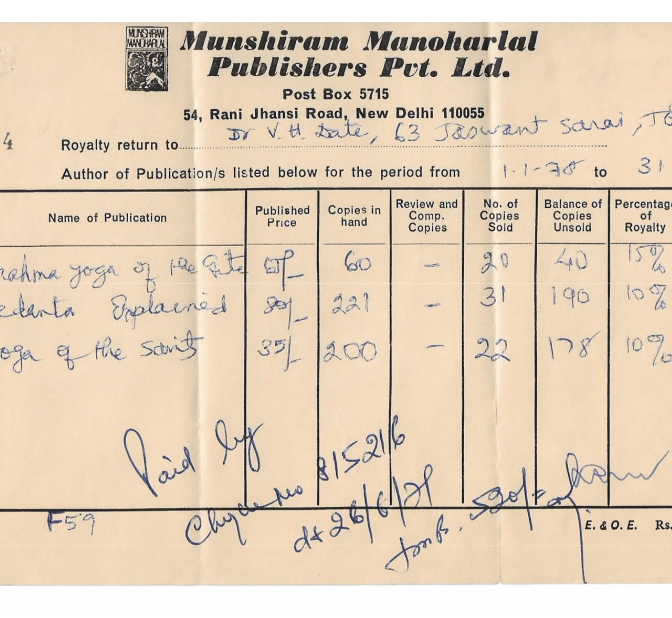 MUNSHIRAM
MANOHARLAL
Munshiram Manoharlal
Publishers Pvt. Ltd.
Post Box 5715
54, Rani Jhansi Road, New Delhi 110055
4
Royalty return to Dr V. H. Date, 63 Jaswant Sarai,
Author of Publication/s listed below for the period from 1-1-78 to 31
Name of Publication Published Price Copies in hand Review and Comp. Copies No. of Copies Sold Balance of Copies Unsold Percentage of Royalty
rahma yoga of the Gita 60 – 20 40 15%
edanta Explained 80/- 221 – 31 190 10%
oga of the Saints 35/- 200 – 22 178 10%
Paid by
Cheque no 815216
dt 26/6/79
520/=
F59
E. & O. E. Rs.